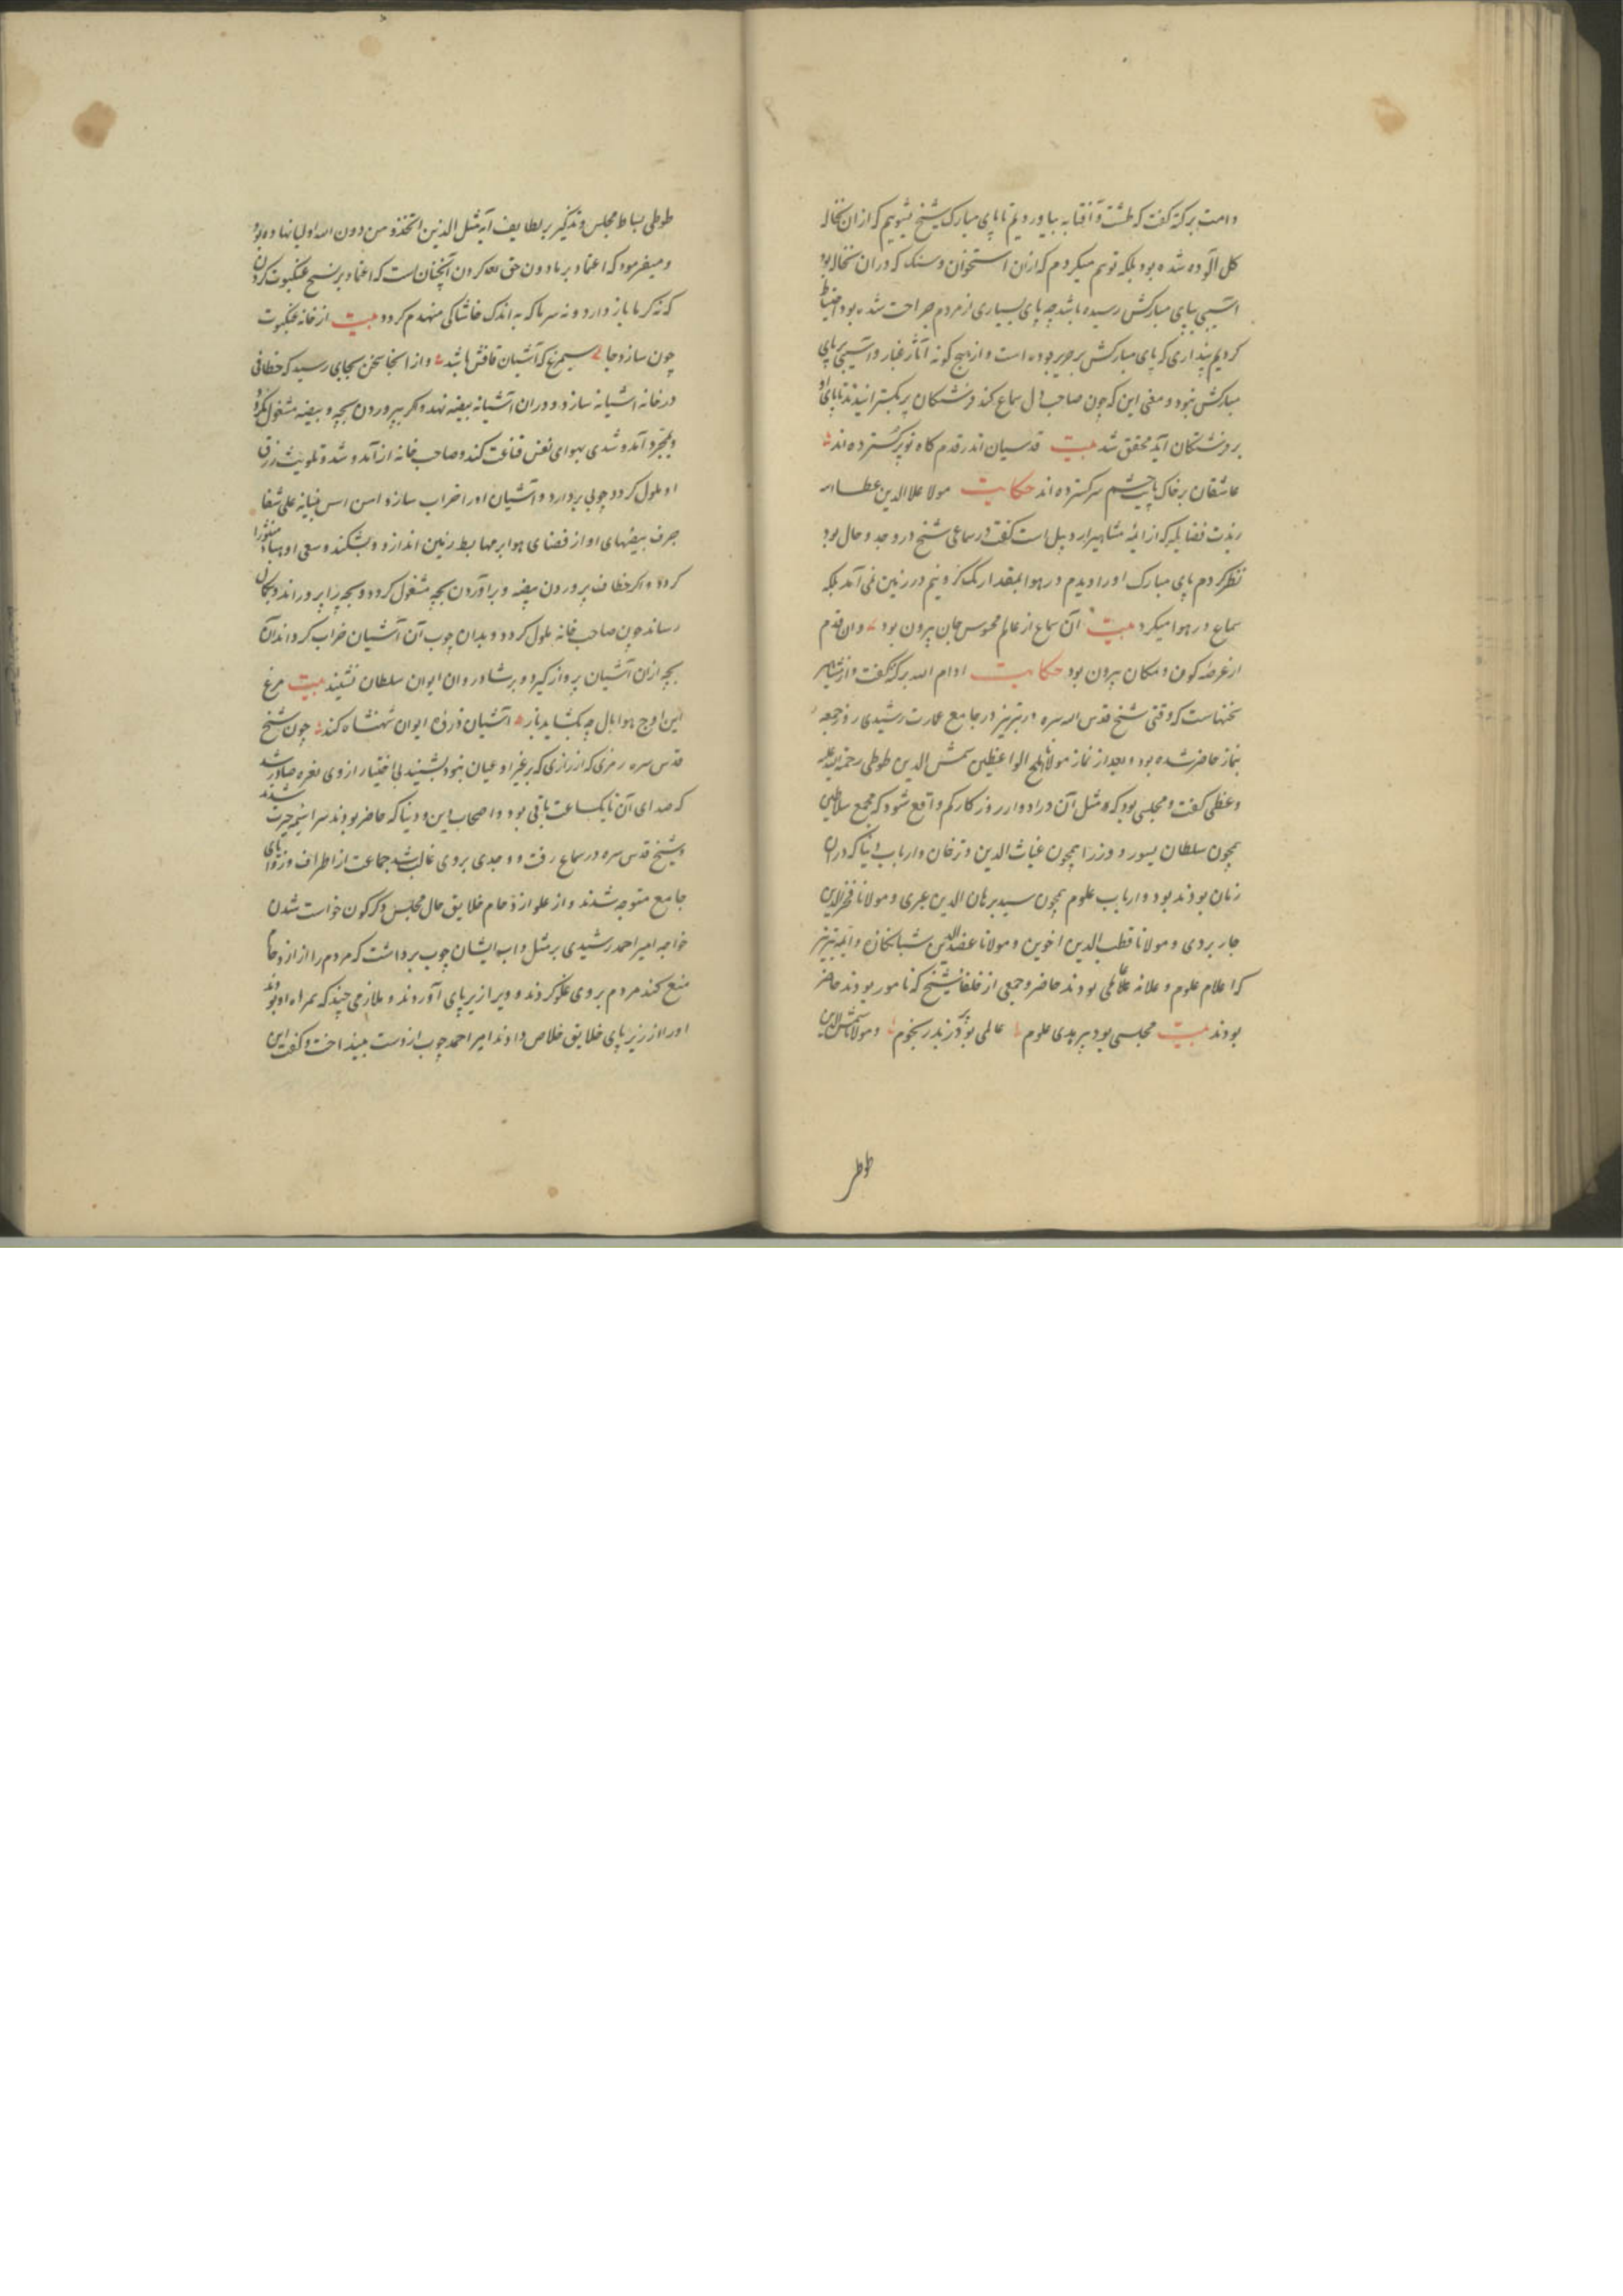 دامت برکته گفت که طشت و آفتابه بیاوردیم تا پای مبارک شیخ بشوییم که ازان نخاله
کل آلوده شده بود بلکه توهم میکردم که ازان استخوان و سنک که دران نخاله بود
آسیبی بپای مبارکش رسیده باشد چه پای بسیاری از مردم جراحت شده بود احتیاط
کردیم پنداری که پای مبارکش بر حریر بوده است و از هیچ کونه آثار غبار و آسیبی بر پای
مبارکش نبود و معنی این که چون صاحب دل سماع کند فرشتکان پر بکسترانیدند تا پای او
بر فرشتکان آید محقق شد بیت قدسیان اندر قدم کاه تو پر کسترده اند
عاشقان بر خاک پایت چشم سر کسترده اند حکایت مولانا علاالدین عطاا
زیدت فضایله که از ائمه مشاهیر اردبیل است گفت در سماعی شیخ در وجد و حال بود
نظر کردم پای مبارک او را دیدم در هوا بمقدار یک کز و نیم در زمین نمی آمد بلکه
سماع در هوا میکرد بیت آن سماع از عالم محسوس جان بیرون بود وان قدم
از عرصه کون و مکان بیرون بود حکایت ادام الله برکته گفت و از مشاهیر
سخنهاست که وقتی شیخ قدس الله سره در تبریز در جامع عمارت رشیدی روز جمعه
بنماز حاضر شده بود و بعد از نماز مولانا ملح الواعظین شمس الدین طوطی رحمة الله علیه
وعظی گفت و مجلسی بود که مثل آن در ادوار روزکار کم واقع شود که مجمع سلاطین
همچون سلطان بسور و وزرا همچون غیاث الدین و ترخان و ارباب دنیا که دران
زمان بودند بود و ارباب علوم همچون سید برهان الدین عبری و مولانا فخرالدین
جاربردی و مولانا قطب الدین اخوین و مولانا عضدالدین شبانکان و ائمه تبریز
که اعلام علوم و علامه علامی بودند حاضر و جمعی از خلفا شیخ که نامور بودند حاضر
بودند بیت مجلسی بود پر بدی علوم عالمی بود پر زبدر بنجوم و مولانا شمس الدین
طوطی
طوطی بساط مجلس وتذکیر بر لطایف آیه مثل الذین اتخذو من دون الله اولیا نهاده بود
و میفرمود که اعتماد بر مادون حق تعه کردن آنچنان است که اعتماد بر نسج عنکبوت کردن
که نه کرما باز دارد و نه سرما که به اندک خاشاکی منهدم کردد بیت از خانه عنکبوت
چون سازد جا سیمرغ که آشیان قافش باشد و از اینجا سخن بجای رسید که خطافی
در خانه اشیانه سازد و دران آشیانه بیضه نهد و اکر بپروردن بچه و بیضه مشغول نکردد
و بمجرد آمد و شدی بهوای نفس قناعت کند و صاحب خانه از آمد و شد و تلویث زرق
او ملول کردد چوبی بردارد و آشیان او را خراب سازد امن اسس بنیانه علی شفا
جرف بیضهای او از فضای هوا بر مهابط زمین اندازد و بشکند و سعی او هباء منثورا
کردد و اکر خطاف بپروردن بیضه و برآوردن بچه مشغول کردد و بچه را پروراند و بکمال
رساند چون صاحب خانه ملول کردد و بدان چوب آن آشیان خراب کرداند آن
بچه ازان آشیان پرواز کیرد و بر شادروان ایوان سلطان نشیند بیت مرغ
این اوج هوا بال چه بکشاید باز آشیان ذروه ایوان شهنشاه کند چون شیخ
قدس سره رمزی که از رازی که بر غیر او عیان نبود بشنید بی اختیار از وی نعره صادر شد
که صدای آن تا یکساعت باقی بود و اصحاب دین و دنیا که حاضر بودند سراسیمه حیرت شدند
و شیخ قدس سره در سماع رفت و وجدی بروی غالب شد جماعت از اطراف و زوایای
جامع متوجه شدند و از علو ازدحام خلایق حال مجلس دکرکون خواست شدن
خواجه امیر احمد رشیدی بر مثل داب ایشان چوب برداشت که مردم را از ازدحام
منع کند مردم بروی غلو کردند و ویرا از زیر پای آوردند و ملازمی چند که همراه او بودند
او را از زیر پای خلایق خلاص دادند امیر احمد چوب از دست بینداخت و گفت این